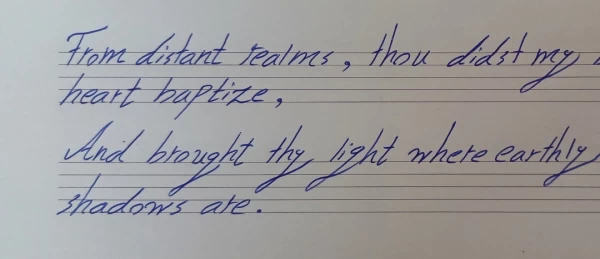 From distant realms, thou didst my
heart baptize,
And brought thy light where earthly
shadows are.